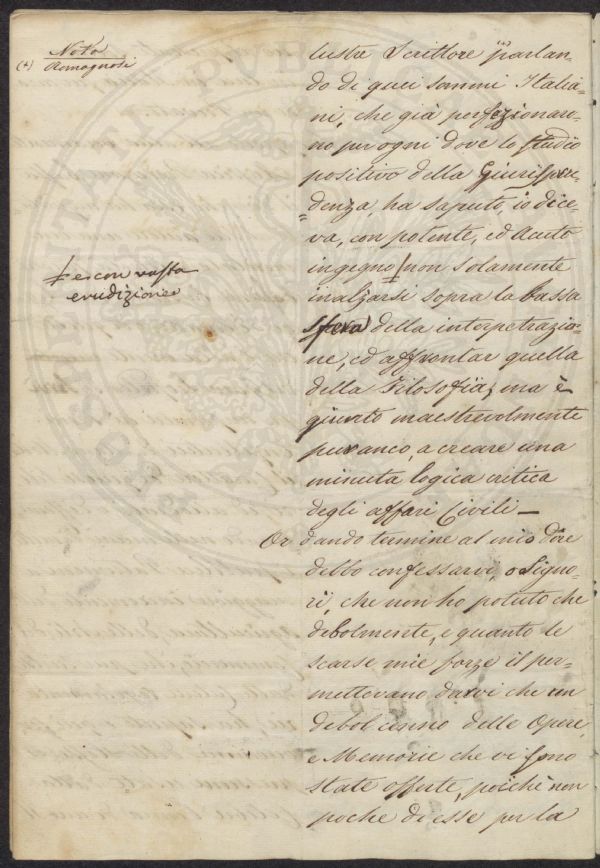 Nota
(4) Romagnosi
lustre Scrittore parlan-
do di quei sommi Italia-
ni, che già perfezionaro-
no per ogni dove lo studio
positivo della Giurispru-
denza, ha saputo, io dice-
va, con potente, ed acuto
ingegno non solamente
inalzarsi sopra la bassa
sfera della interpetrazio-
ne, ed affrontar quella
della Filosofia, ma è
giunto maestrevolmente
peranco, a creare una
minuta logica critica
degli affari Civili —
Or dando termine al mio dire
debbo confessarvi, o Signo-
ri, che non ho potuto che
debolmente, e quanto le
scarse mie forze il per-
mettevano darvi che un
debol cenno delle Opere,
e Memorie che vi sono
state offerte, poichè non
poche di esse per la
e con vasta
erudizione
PROSPERITATI PUB